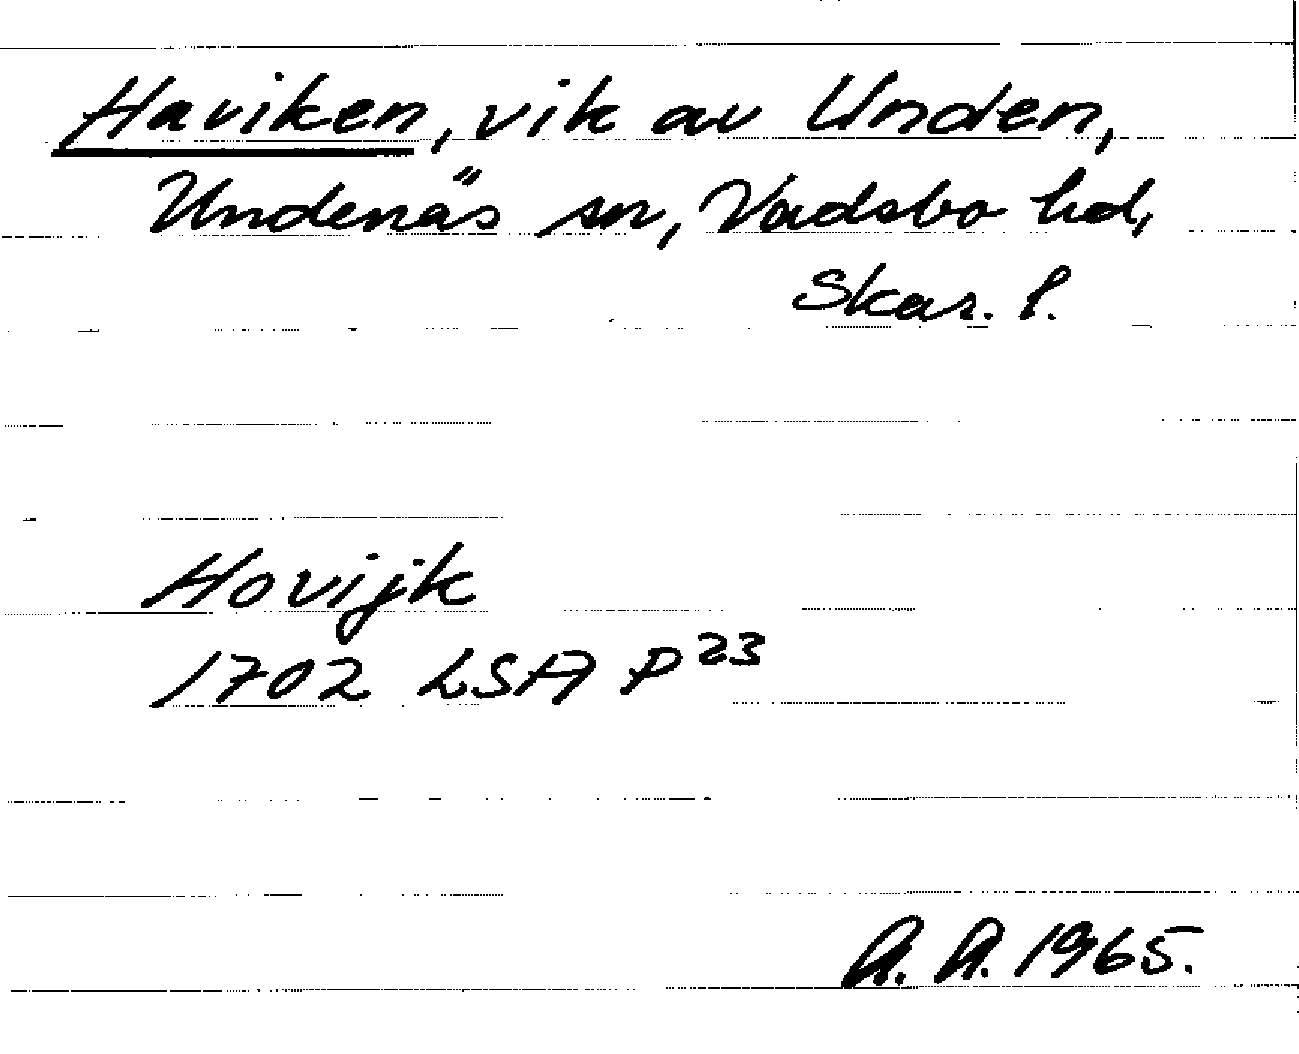 Haviken, vik av Unden,
Undenäs sn, Vadsbo hd,
Skar. l.
Hovijk
1702 LSA P23
A. A. 1965.